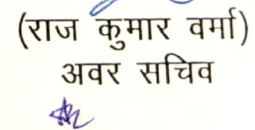 (राज कुमार वर्मा)
अवर सचिव